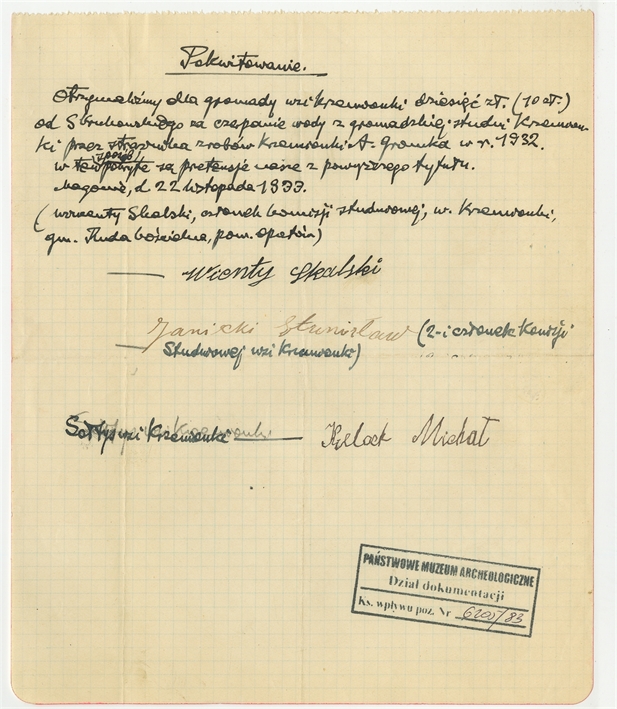 Pokwitowanie.
Otrzymaliśmy dla gromady wsi Krzemionki dziesięć zł. (10 zł.)
od S. Krukowskiego za czerpanie wody z gromadzkiej studni Krzemion-
ki przez strażnika zrobów Krzemionki A. Gromka w r. 1932.
w ten sposób pokryte są pretensje nasze z powyższego tytułu.
Magonie, d. 22 listopada 1933.
(wincenty Skalski, członek komisji studniowej, w. Krzemionki,
gm. Ruda Kościelna, pow. opatów)
— Wicnty Skalski
Janicki Stanisław (2-i członek Komisji
— Studniowej wsi Krzemionki)
Sołtys wsi Krzemionki — Michał
PAŃSTWOWE MUZEUM ARCHEOLOGICZNE
Dział dokumentacji
Ks. wpływu poz. Nr /83